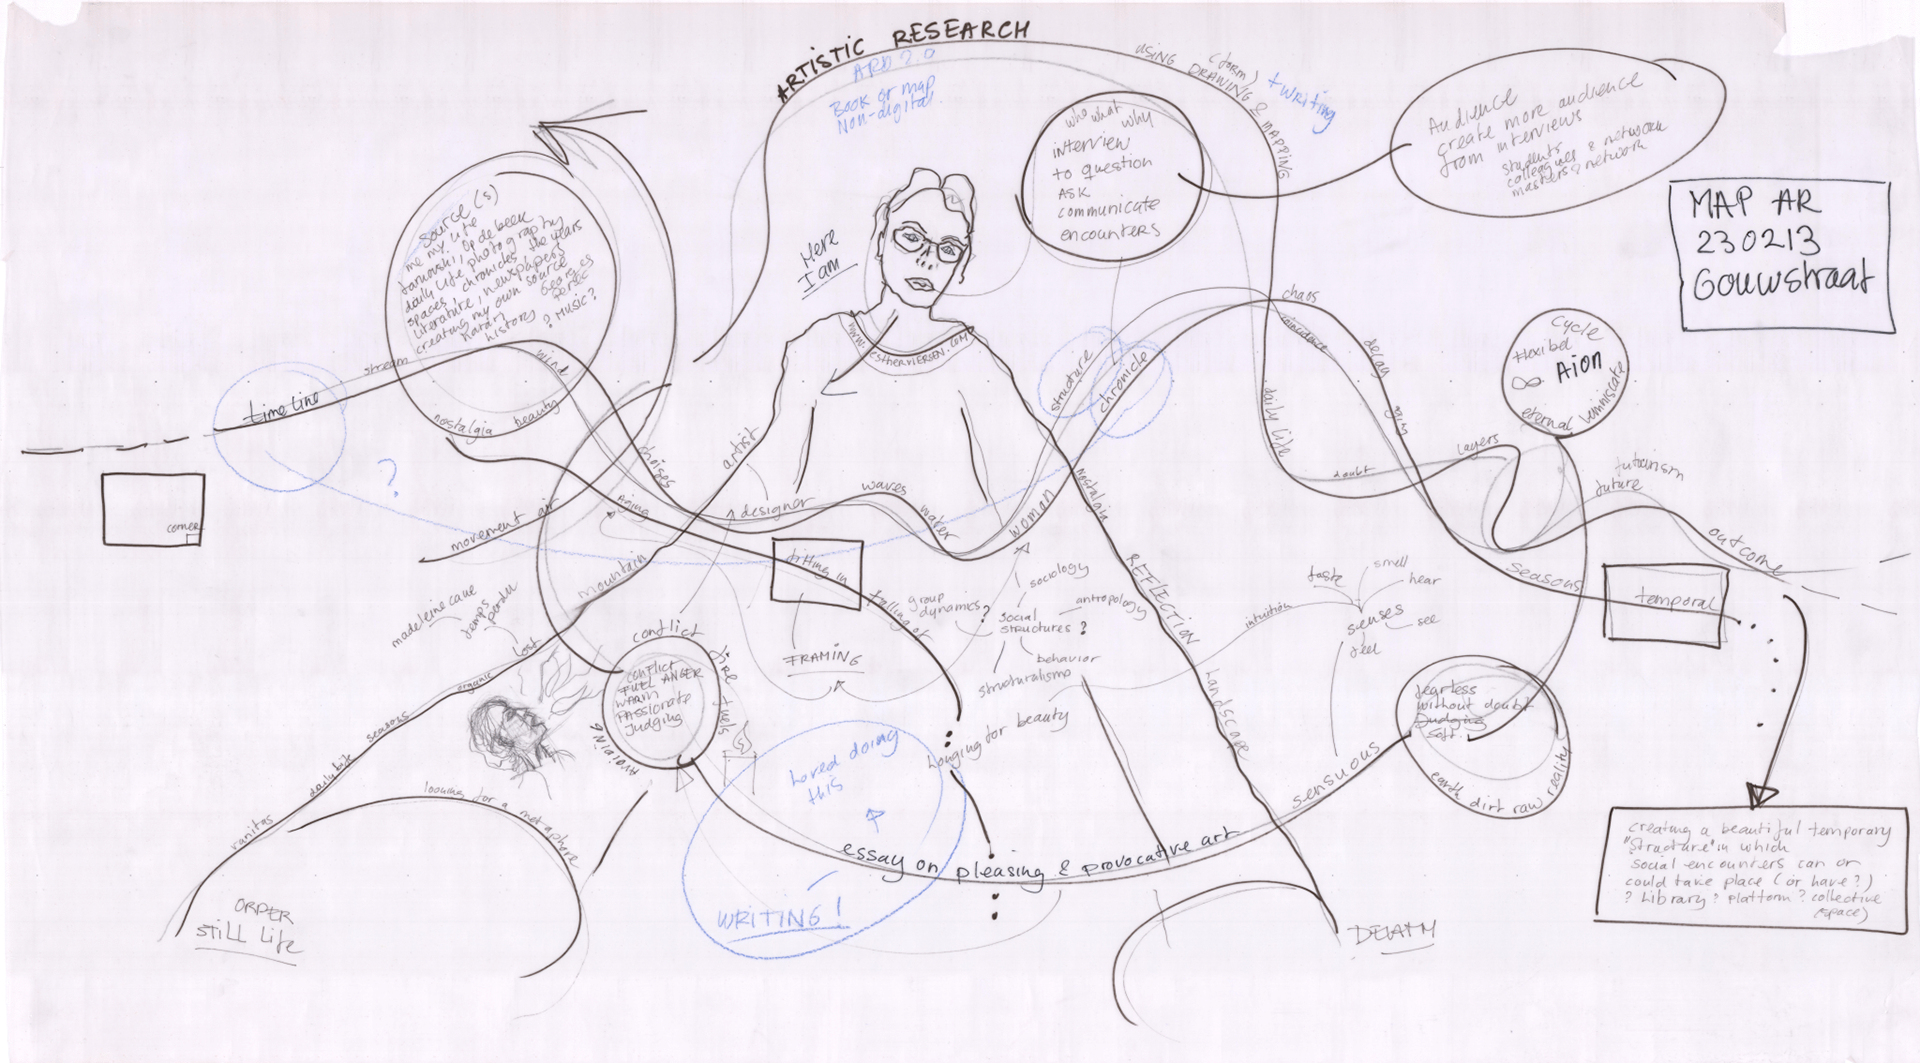 ARTISTIC RESEARCH
ARD 2.0
Book or map
Non-digital.
USING (form) + writing
DRAWING & MAPPING
who what why
interview
to question
ASK
communicate
encounters
Audience
create more audience
from interviews
students
colleagues & network
masters & network
MAP AR
230213
Gouwstraat
Source(s)
me my life
op de beek
daily life photography
spaces, chronicles the years
Literature, newspapers
creating my own source
Georges
Perec
history ? Music?
Here
I am
www.estherviersen.com
stream
wind
timeline
nostalgia beauty
noises
artist
designer
waves
water
woman
structure
chronicle
chaos
coincidence
decay
aging
daily life
doubt
layers
Cycle
flexibel
∞ Aion
eternal lemniscate
futurism
future
outcome
seasons
temporal
corner
?
movement air
Aging
mountain
drifting in
falling of
FRAMING
group
dynamics?
sociology
antropology
social
structures?
behavior
structuralism
Nostalgia
REFLECTION
Landscape
intuition
taste
smell
hear
senses
see
feel
madeleine cake
temps
perdu
Lost
organic
seasons
daily life
vanitas
looking for a metaphore
ORDER
still life
conflict
conflict
FUEL ANGER
WARM
PASSIONATE
Judging
fire fuels
AVOIDING
Loved doing
this
WRITING!
longing for beauty
essay on pleasing & provocative art
sensuous
fearless
without doubt
Judging
soft.
earth dirt raw reality
DEATH
creating a beautiful temporary
"structure" in which
social encounters can or
could take place (or have?)
? Library? platform? collective
(space)